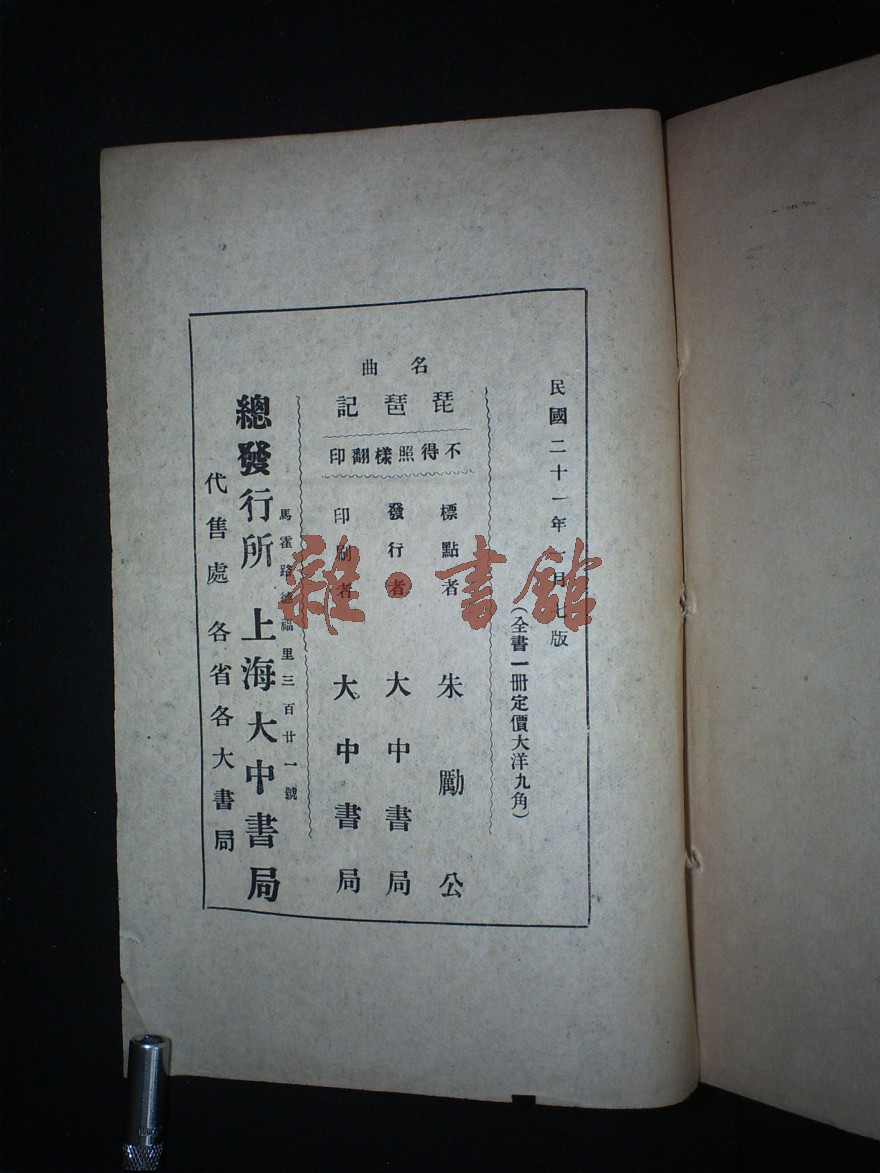 民國二十一年一月七版
(全書一冊定價大洋九角)
名曲
琵琶記
不得照樣翻印
標點者 朱勵公
發行者 大中書局
印刷者 大中書局
馬霍路德福里三百廿一號
總發行所 上海大中書局
代售處 各省各大書局
雜·書館